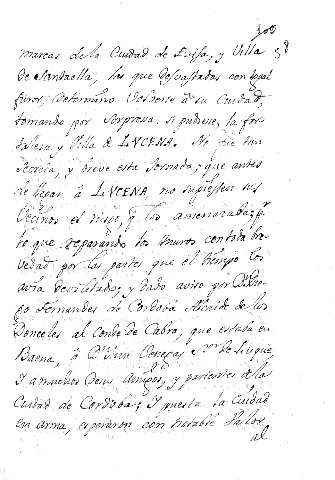 marcas de la Ciudad de Ecija, y Villa
de Santaella, las que desvastadas con igual
furor, determino bolverse a su Ciudad,
tomando por sorpresa, si pudiese, la for-
taleza, y Villa de LVCENA. No fue tan
secreta, y breve esta Jornada; que antes
de llegar à LVCENA, no supiessen sus
Vecinos el riesgo, q los amenazada; p.r
lo que, reparando los muros con toda bre-
vedad por las partes que el tiempo los
avia devilitado; y dado aviso por D.n Die-
go Fernandes de Cordoba Alcaide de los
Donceles al Conde de Cabra, que estaba en
Baena, à D.n Venegas S.or de Luque,
Y a muchos Deus Amigos, y parientes de la
Ciudad de Cordoba; Y puesta la Ciudad
en arma, esperaron con notable Valor
al